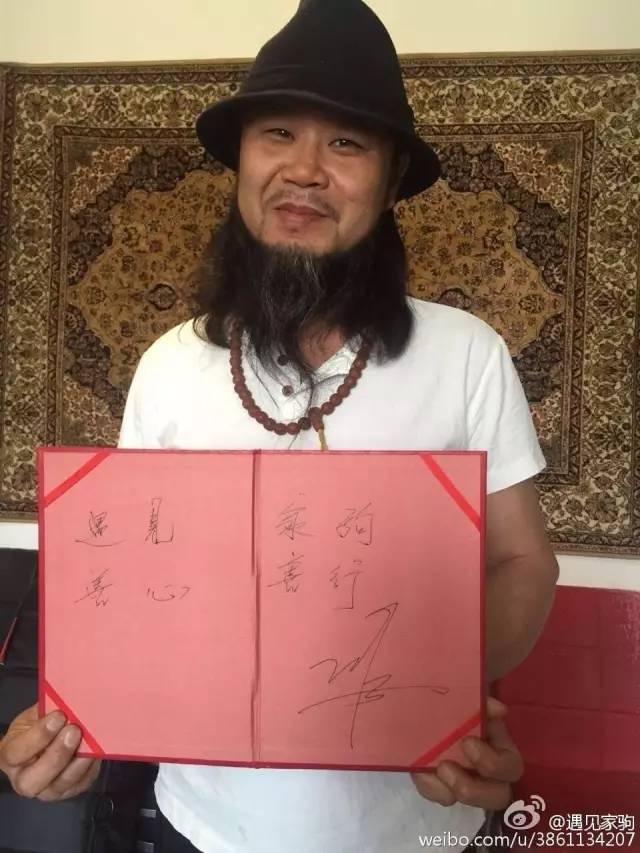 遇见 家驹
善心 善行
@遇见家驹
weibo.com/u/3861134207